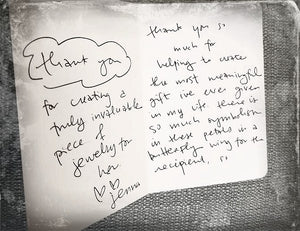 thank you
for creating a
truly invaluable
piece of
jewelry for
her.
Jenna
thank you so
much for
helping to create
the most meaningful
gift i've ever given
in my life. there is
so much symbolism
in these petals in a
butterfly wing for the
recipient, so